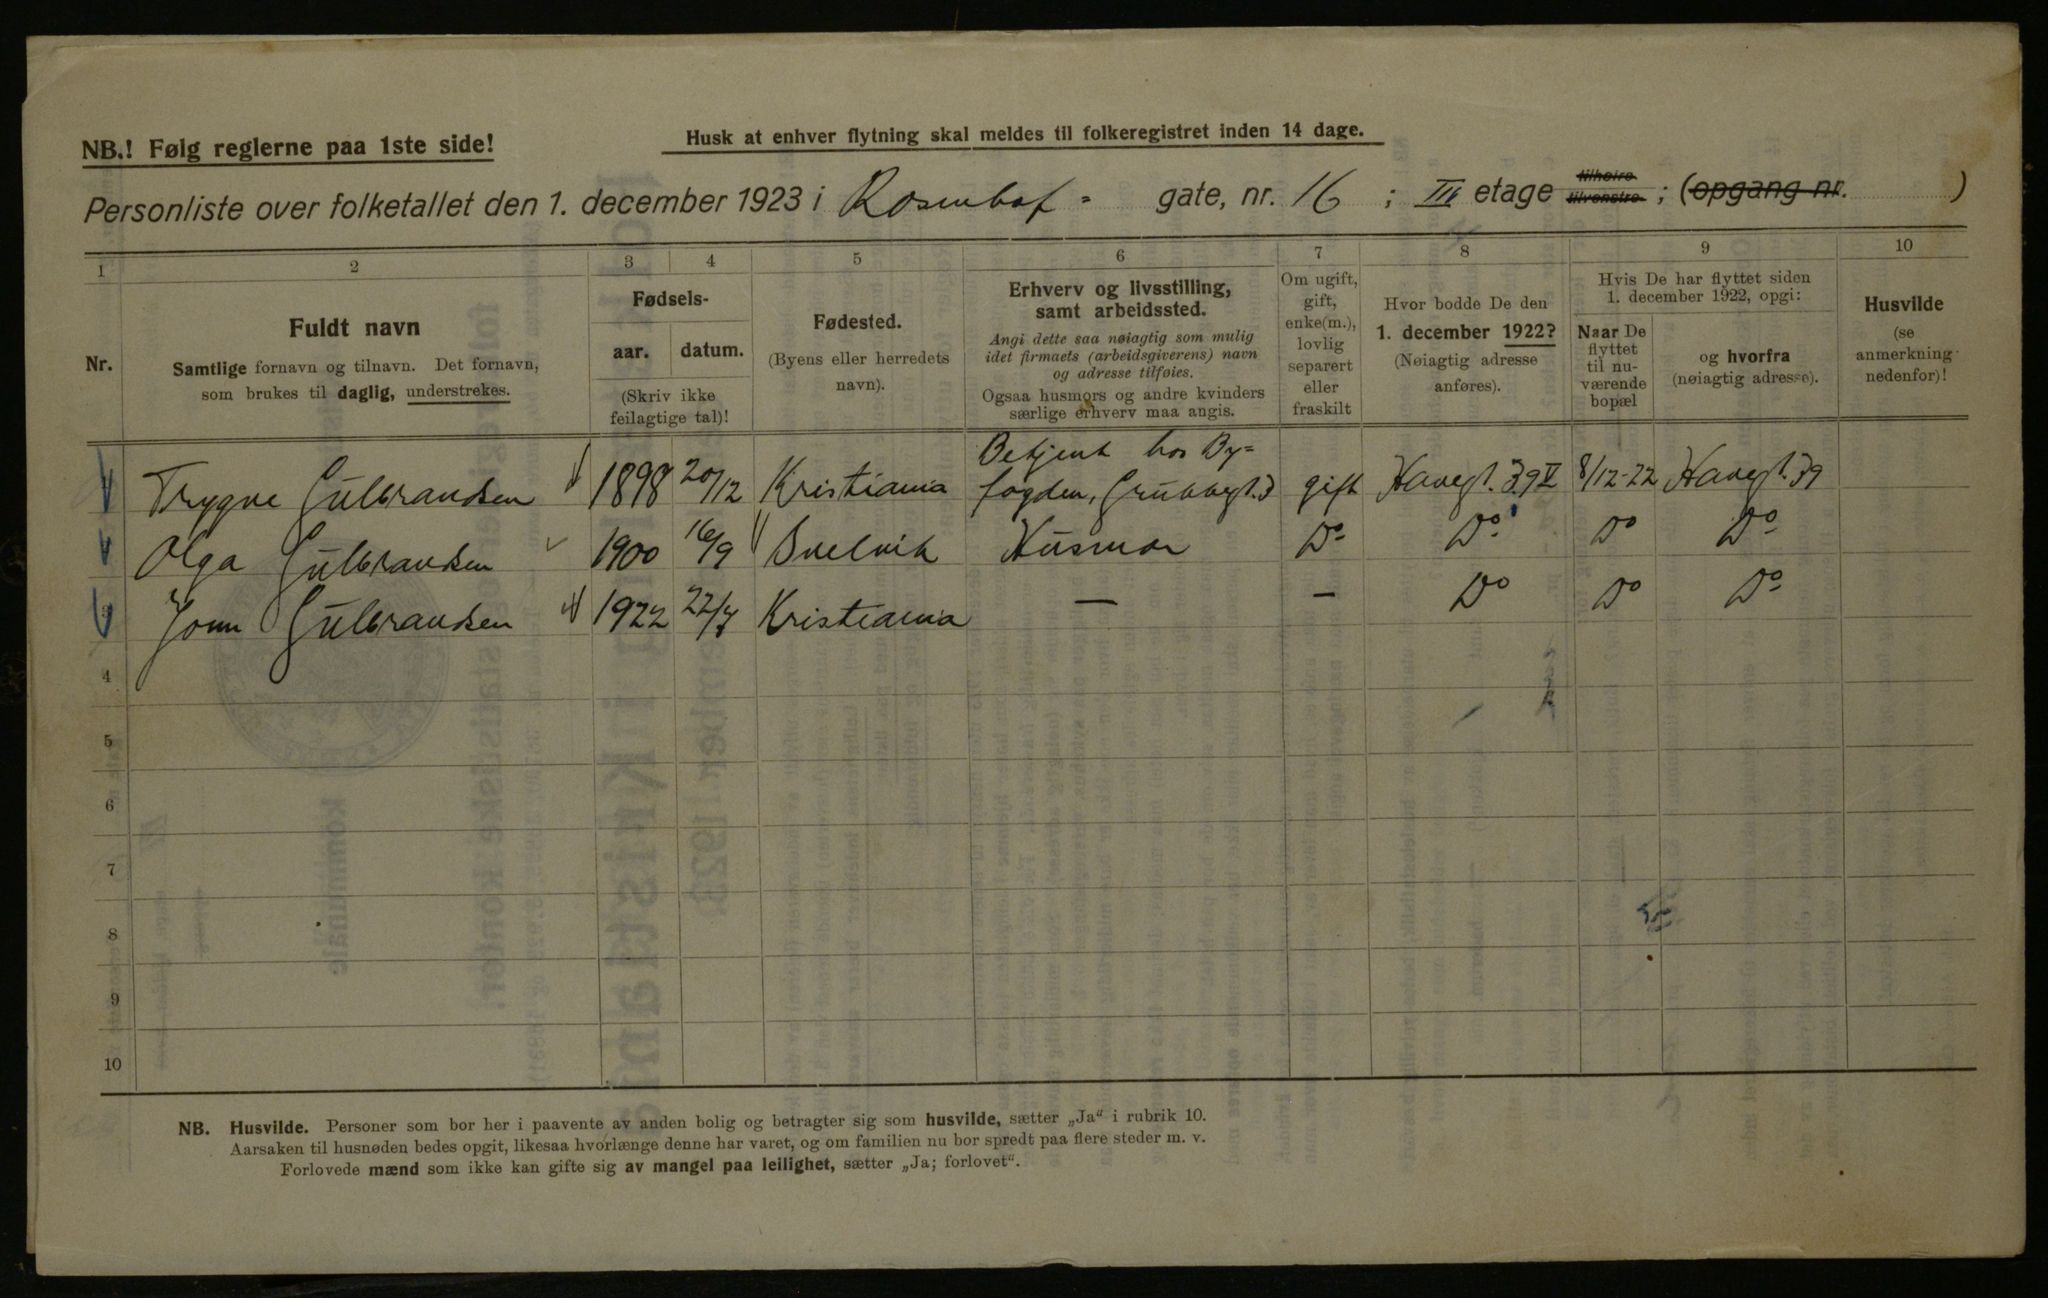 NB.! Følg reglerne paa 1ste side!
Husk at enhver flytning skal meldes til folkeregistret inden 14 dage.
Personliste over folketallet den 1. december 1923 i Rosenhof - gate, nr. 16 ; III etage tilhøire tilvenstre ; (opgang nr. )
1 2 3 4 5 6 7 8 9 10
Nr.
Fuldt navn
Samtlige fornavn og tilnavn. Det fornavn,
som brukes til daglig, understrekes.
Fødsels-
aar. datum.
(Skriv ikke
feilagtige tal)!
Fødested.
(Byens eller herredets
navn).
Erhverv og livsstilling,
samt arbeidssted.
Angi dette saa nøiagtig som mulig
idet firmaets (arbeidsgiverens) navn
og adresse tilføies.
Ogsaa husmors og andre kvinders
særlige erhverv maa angis.
Om ugift,
gift,
enke(m.),
lovlig
separert
eller
fraskilt
Hvor bodde De den
1. december 1922?
(Nøiagtig adresse
anføres).
Hvis De har flyttet siden
1. december 1922, opgi:
Naar De
flyttet
til nu-
værende
bopæl
og hvorfra
(nøiagtig adresse).
Husvilde
(se
anmerkning
nedenfor)!
Trygve Gulbrandsen 1898 20/12 Kristiania Betjent hos By=
fogden, Grubbegt. 3 gift Havegt. 39 V 8/12-22 Havegt. 39
Olga Gulbrandsen 1900 16/9 Svelvik Husmor Do Do Do Do
3 Gulbrandsen 1922 22/7 Kristiania — — Do Do Do
4
5
6
7
8
9
10
NB. Husvilde. Personer som bor her i paavente av anden bolig og betragter sig som husvilde, sætter „Ja“ i rubrik 10.
Aarsaken til husnøden bedes opgit, likesaa hvorlænge denne har varet, og om familien nu bor spredt paa flere steder m. v.
Forlovede mænd som ikke kan gifte sig av mangel paa leilighet, sætter „Ja; forlovet“.